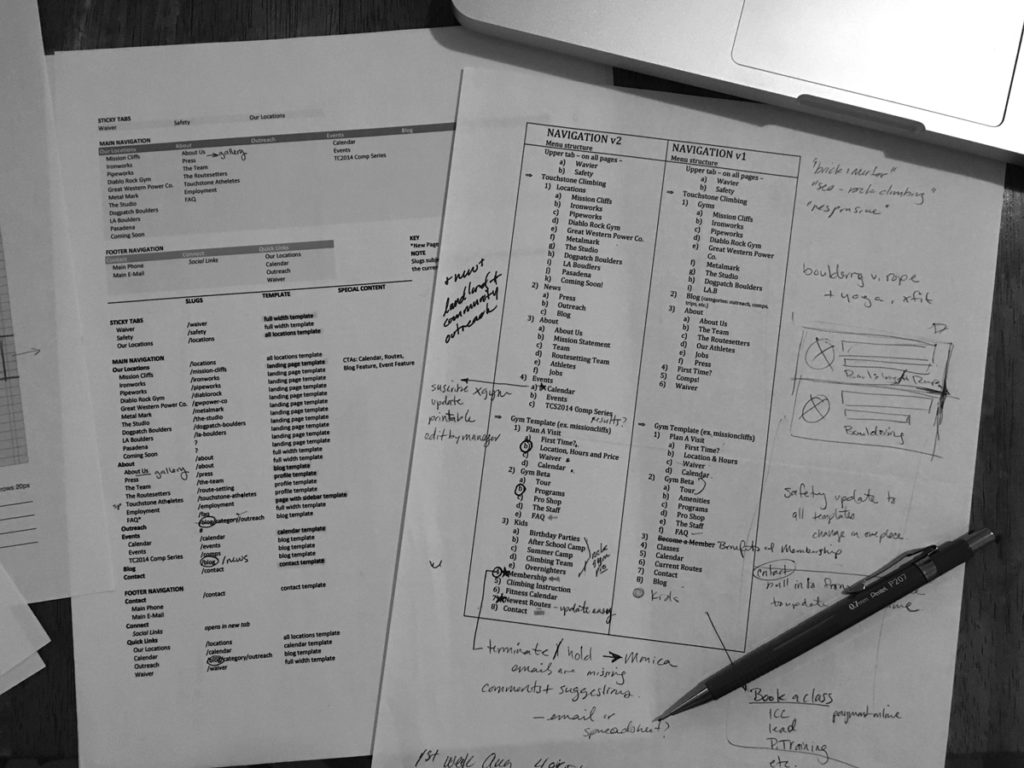 STICKY TABS
Waiver Safety Our Locations
MAIN NAVIGATION
Our Locations About Outreach Events Blog
Mission Cliffs About Us → gallery Calendar
Ironworks Press Events
Pipeworks The Team TC2014 Comp Series
Diablo Rock Gym The Routesetters
Great Western Power Co. Touchstone Atheletes
Metal Mark Employment
The Studio FAQ
Dogpatch Boulders
LA Boulders
Pasadena
Coming Soon
FOOTER NAVIGATION
Contact Connect Quick Links
Main Phone Social Links Our Locations
Main E-Mail Calendar
Outreach
Waiver
KEY
*New Page
NOTE
Slugs
the curren
SLUGS TEMPLATE SPECIAL CONTENT
STICKY TABS
Waiver /waiver full width template
Safety /safety full width template
Our Locations /locations all locations template
MAIN NAVIGATION
Our Locations /locations all locations template
Mission Cliffs /mission-cliffs landing page template CTAs: Calendar, Routes,
Ironworks /ironworks landing page template Blog Feature, Event Feature
Pipeworks /pipeworks landing page template
Diablo Rock Gym /diablorock landing page template
Great Western Power Co. /gwpower-co landing page template
Metal Mark /metalmark landing page template
The Studio /the-studio landing page template
Dogpatch Boulders /dogpatch-boulders landing page template
LA Boulders /la-boulders landing page template
Pasadena ? landing page template
Coming Soon ? full width template
About /about full width template
About Us gallery /about full width template
Press /press blog template
The Team /the-team profile template
The Routesetters /route-setting profile template
Touchstone Atheletes /touchstone-athletes profile template
Employment /employment page with sidebar template
FAQ* /faq full width template
Outreach /blog/category/outreach blog template
Events
Calendar /calendar calendar template
Events /events blog template
TC2014 Comp Series /comps blog template
Blog /blog /news blog template
Contact /contact contact template
FOOTER NAVIGATION
Contact /contact contact template
Main Phone
Main E-Mail
Social Links opens in new tab
Quick Links
Our Locations /locations all locations template
Calendar /calendar calendar template
Outreach /blog/category/outreach blog template
Waiver /waiver full width template
NAVIGATION v2
Menu structure
Upper tab – on all pages –
a) Wavier
b) Safety
⇒ Touchstone Climbing
1) Locations
a) Mission Cliffs
b) Ironworks
c) Pipeworks
d) Diablo Rock Gym
e) Great Western Power Co.
f) Metalmark
g) The Studio
h) Dogpatch Boulders
i) LA Boudlers
j) Pasadena
k) Coming Soon!
2) News
a) Press
b) Outreach
c) Blog
3) About
a) About Us
b) Mission Statement
c) Team
d) Routesetting Team
e) Athletes
f) Jobs
4) Events
a) Calendar
b) Events
c) TCS2014 Comp Series
results?
⇒ Gym Template (ex. missioncliffs)
1) Plan A Visit
a) First Time?
b) Location, Hours and Price
c) Waiver
d) Calendar
2) Gym Beta
a) Tour
b) Programs
c) Pro Shop
d) The Staff
e) FAQ
3) Kids
a) Birthday Parties
b) After School Camp
c) Summer Camp
d) Climbing Team
e) Overnighters
4) Membership
5) Climbing Instruction
6) Fitness Calendar
7) Newest Routes - update easy
8) Contact
NAVIGATION v1
Menu structure
Upper tab – on all pages –
a) Wavier
b) Safety
⇒ Touchstone Climbing
1) Gyms
a) Mission Cliffs
b) Ironworks
c) Pipeworks
d) Diablo Rock Gym
e) Great Western Power
Co.
f) Metalmark
g) The Studio
h) Dogpatch Boulders
i) LA.B
2) Blog (categories: outreach, comps,
trips, etc.)
3) About
a) About Us
b) The Team
c) The Routesetters
d) Our Athletes
e) Jobs
f) Press
4) First Time?
5) Comps!
6) Waiver
⇒ Gym Template (ex. missioncliffs)
1) Plan A Visit
a) First Time?
b) Location & Hours
c) Waiver
d) Calendar
2) Gym Beta
a) Tour
b) Amenities
c) Programs
d) Pro Shop
e) The Staff
f) FAQ
3) Become a Member Benefits of Membership
4) Classes
5) Calendar
6) Current Routes
7) Contact
8) Blog
Kids
+ news +
community
outreach
update
printable
edit by manager
"responsive"
bouldering v. rope
+ yoga, xfit
Bouldering
Safety update to
all templates
change in one place
contact
to update
terminate / hold → Monica
emails are missing
comments + suggestions
- email or
spreadsheet?
Book a class
ICC payment online
lead
P. Training
etc.
1st week
0.7mm Pentel P207
rows 20ps